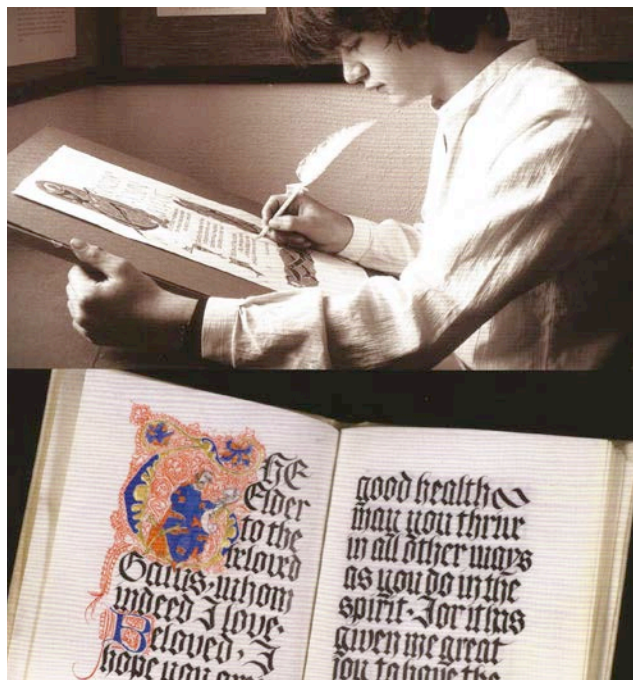 THE
Elder
to the
Gaius, whom
indeed I love.
Beloved, I
hope you are
good health
may you thrive
in all other ways
as you do in the
spirit. For it has
given me great
joy to have the